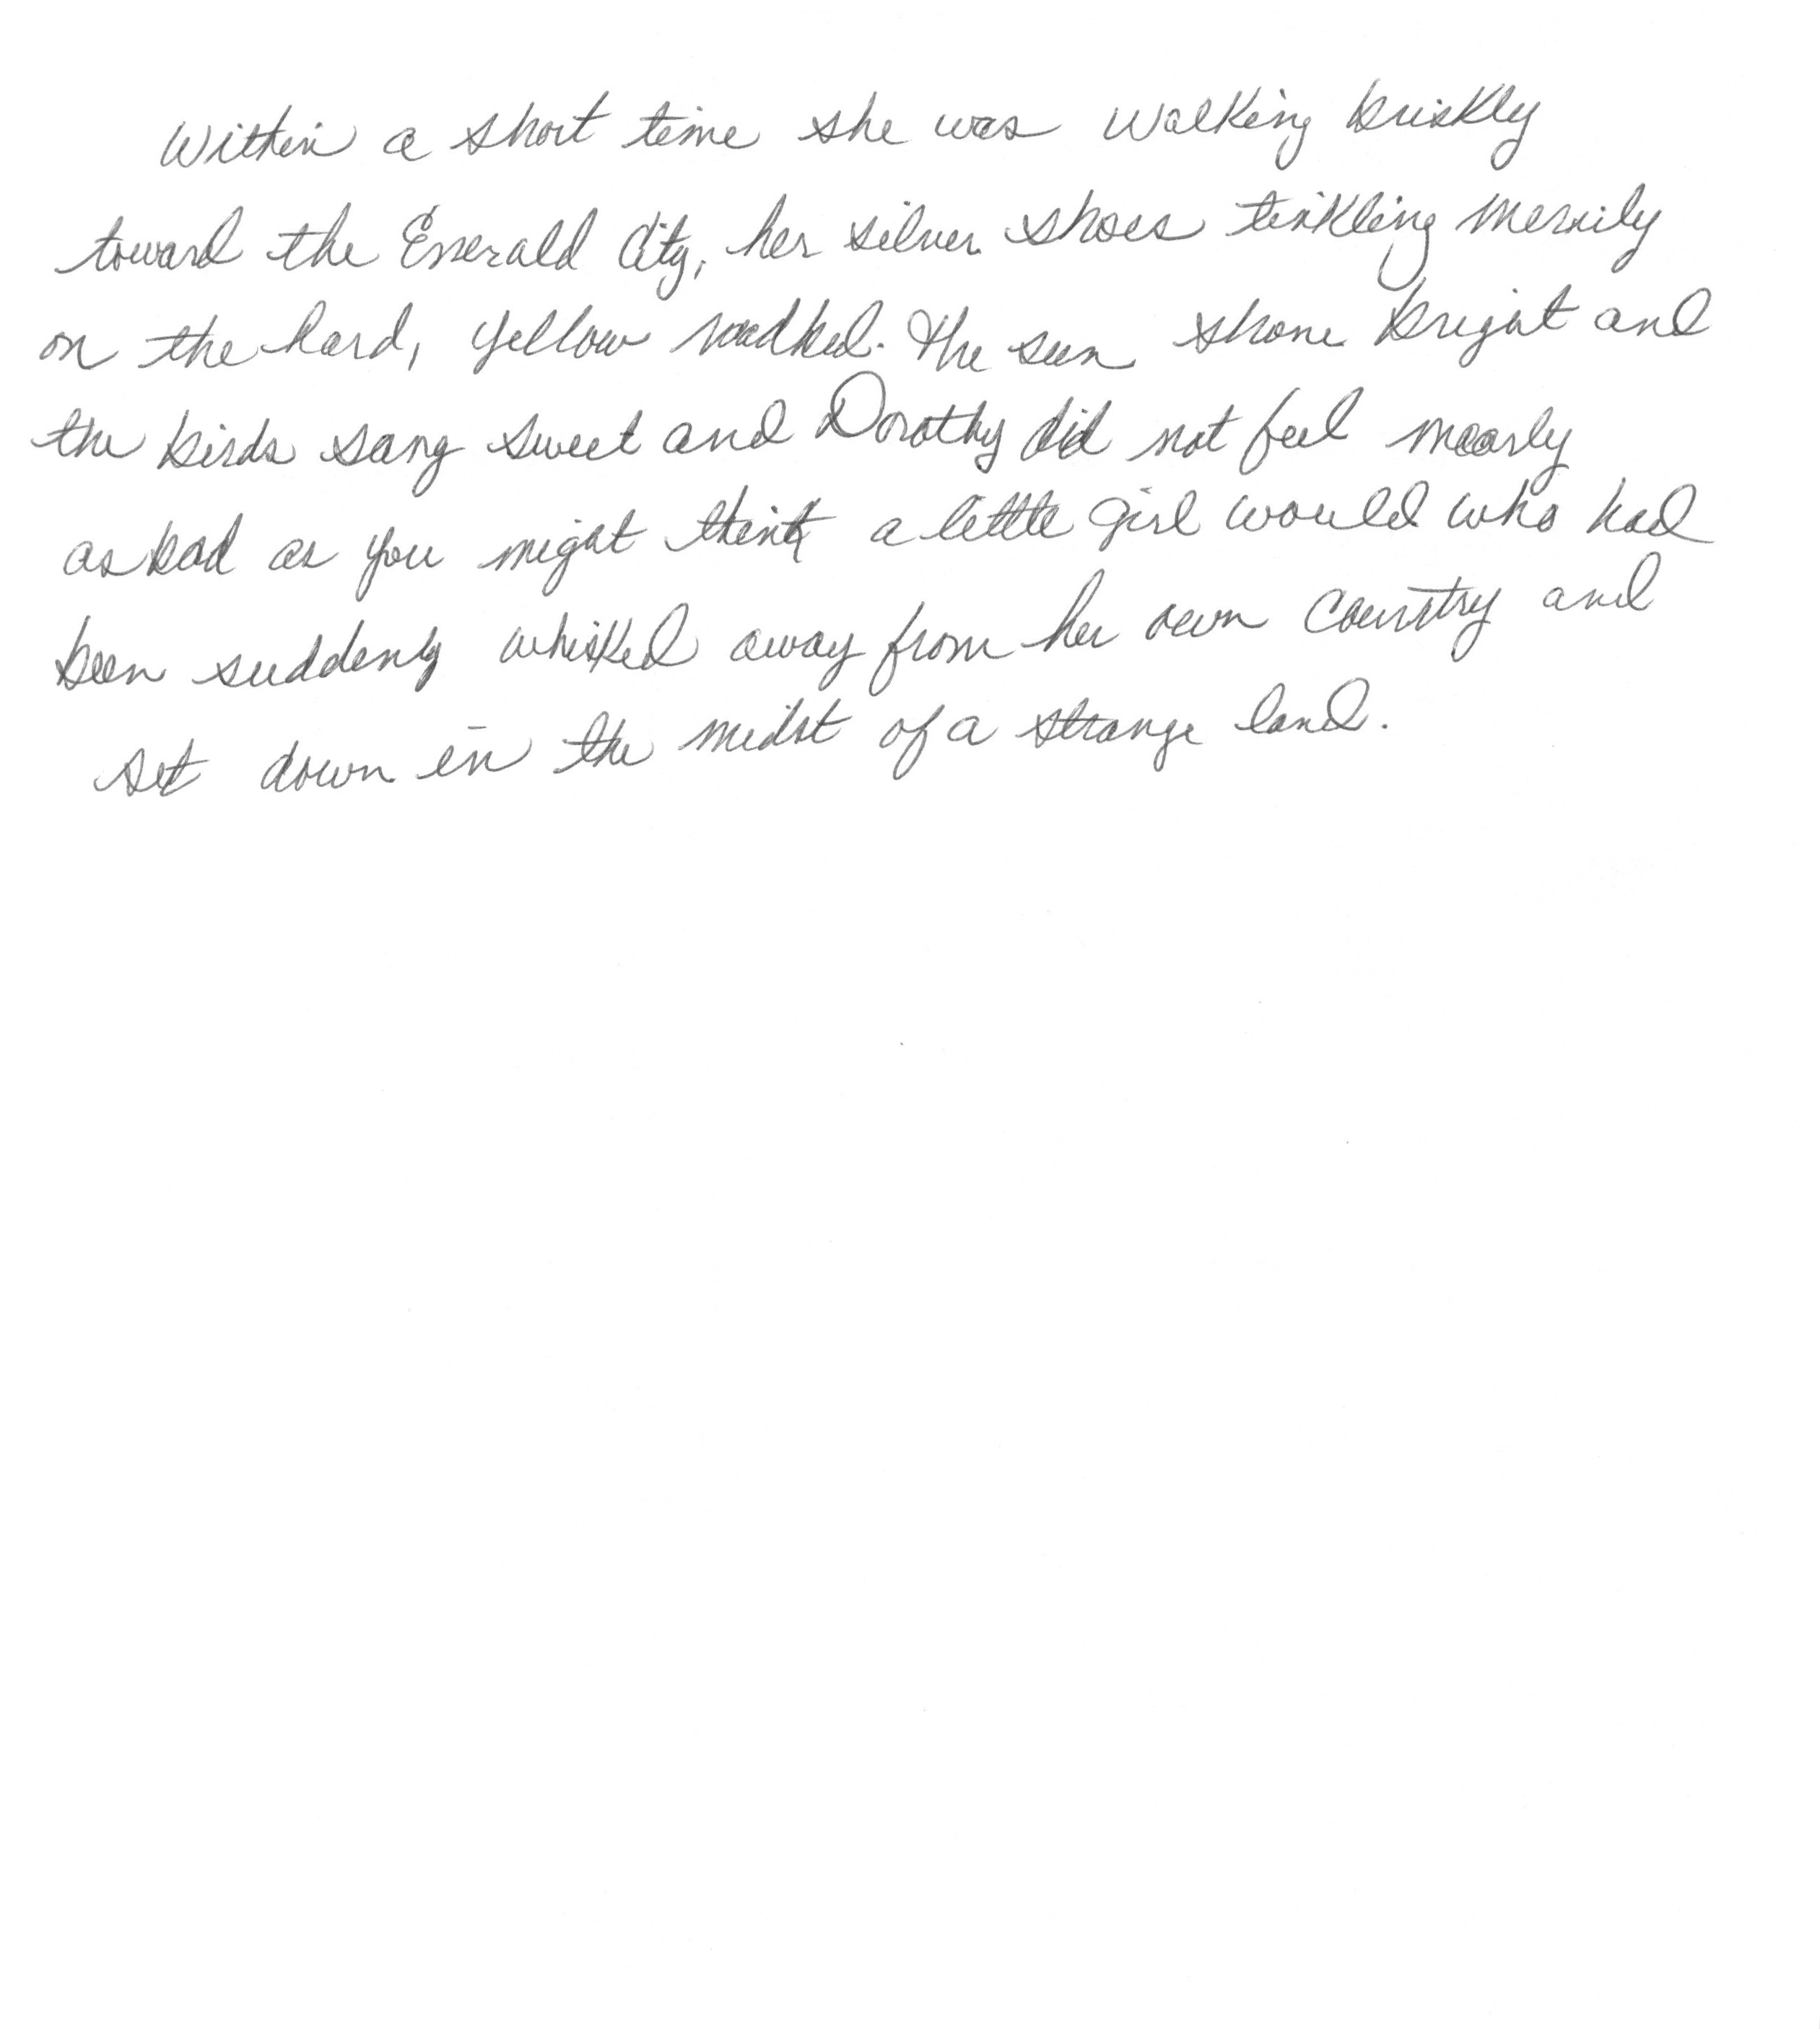 Within a short time she was walking briskly
toward the Emerald City, her silver shoes tinkling merrily
on the hard, yellow roadbed. The sun shone bright and
the birds sang sweet and Dorothy did not feel nearly
as bad as you might think a little girl would who had
been suddenly whisked away from her own country and
set down in the midst of a strange land.